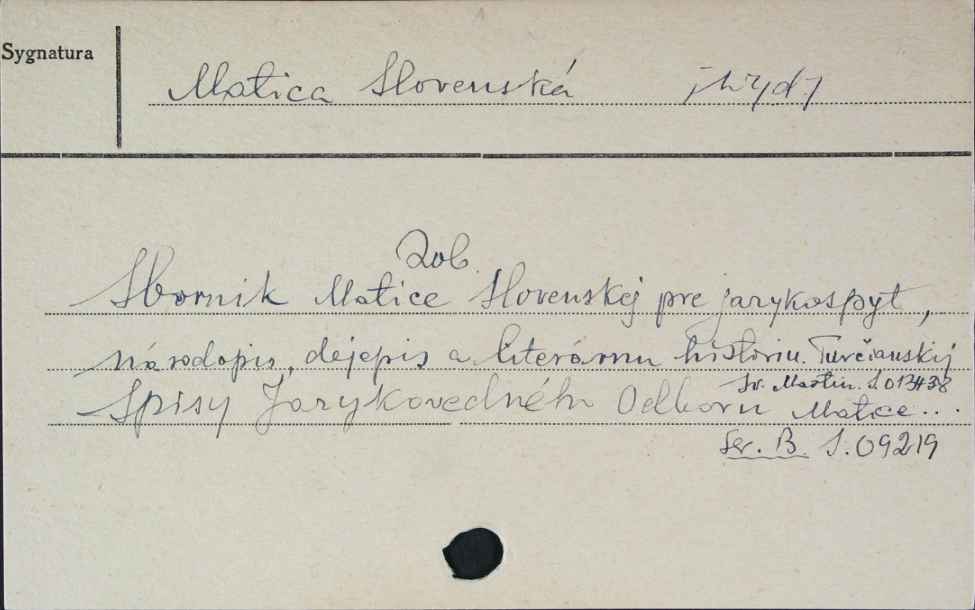 Sygnatura
Matica Slovenská /wyd/
Zob.
Sborník Matice Slovenskej pre jazykospyt,
národopis, dejepis a literárnu históriu. Turčianskij
Sv. Martin. S.013438
Spisy Jazykovedného Odboru Matice...
Ser. B. S.09219